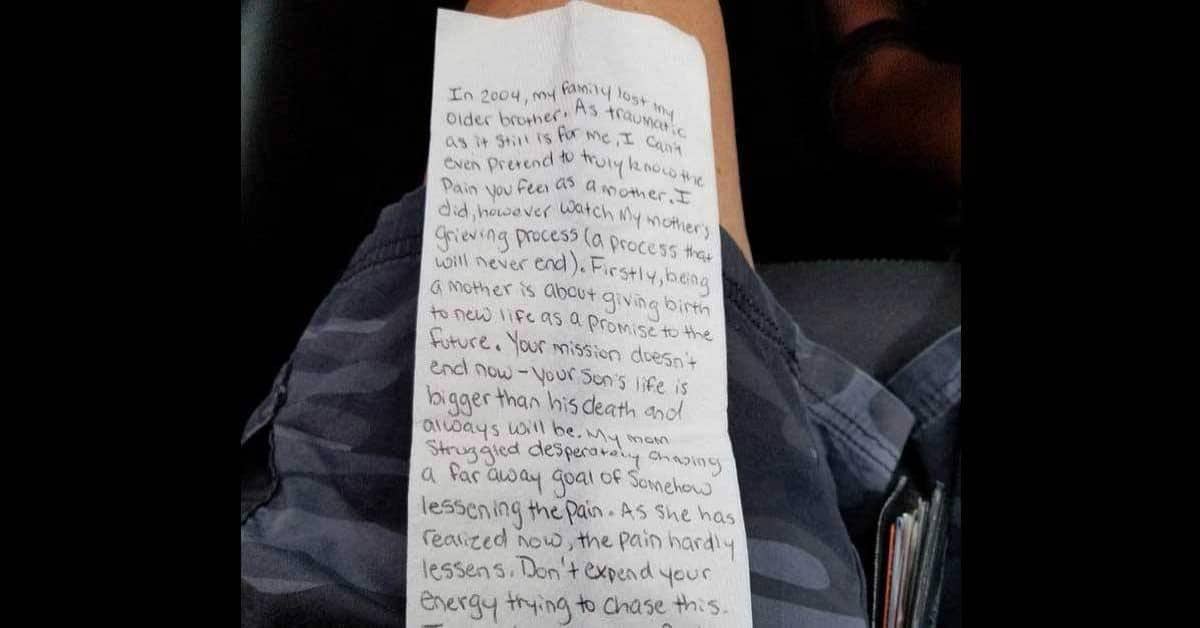 In 2004, my family lost my
older brother. As traumatic
as it still is for me, I can't
even pretend to truly know the
Pain you feel as a mother. I
did, however watch My mother's
grieving process (a process that
will never end). Firstly, being
a mother is about giving birth
to new life as a promise to the
future. Your mission doesn't
end now - your son's life is
bigger than his death and
always will be. My mom
Struggled desperately chasing
a far away goal of Somehow
lessening the pain. As she has
realized now, the pain hardly
lessens. Don't expend your
energy trying to chase this.